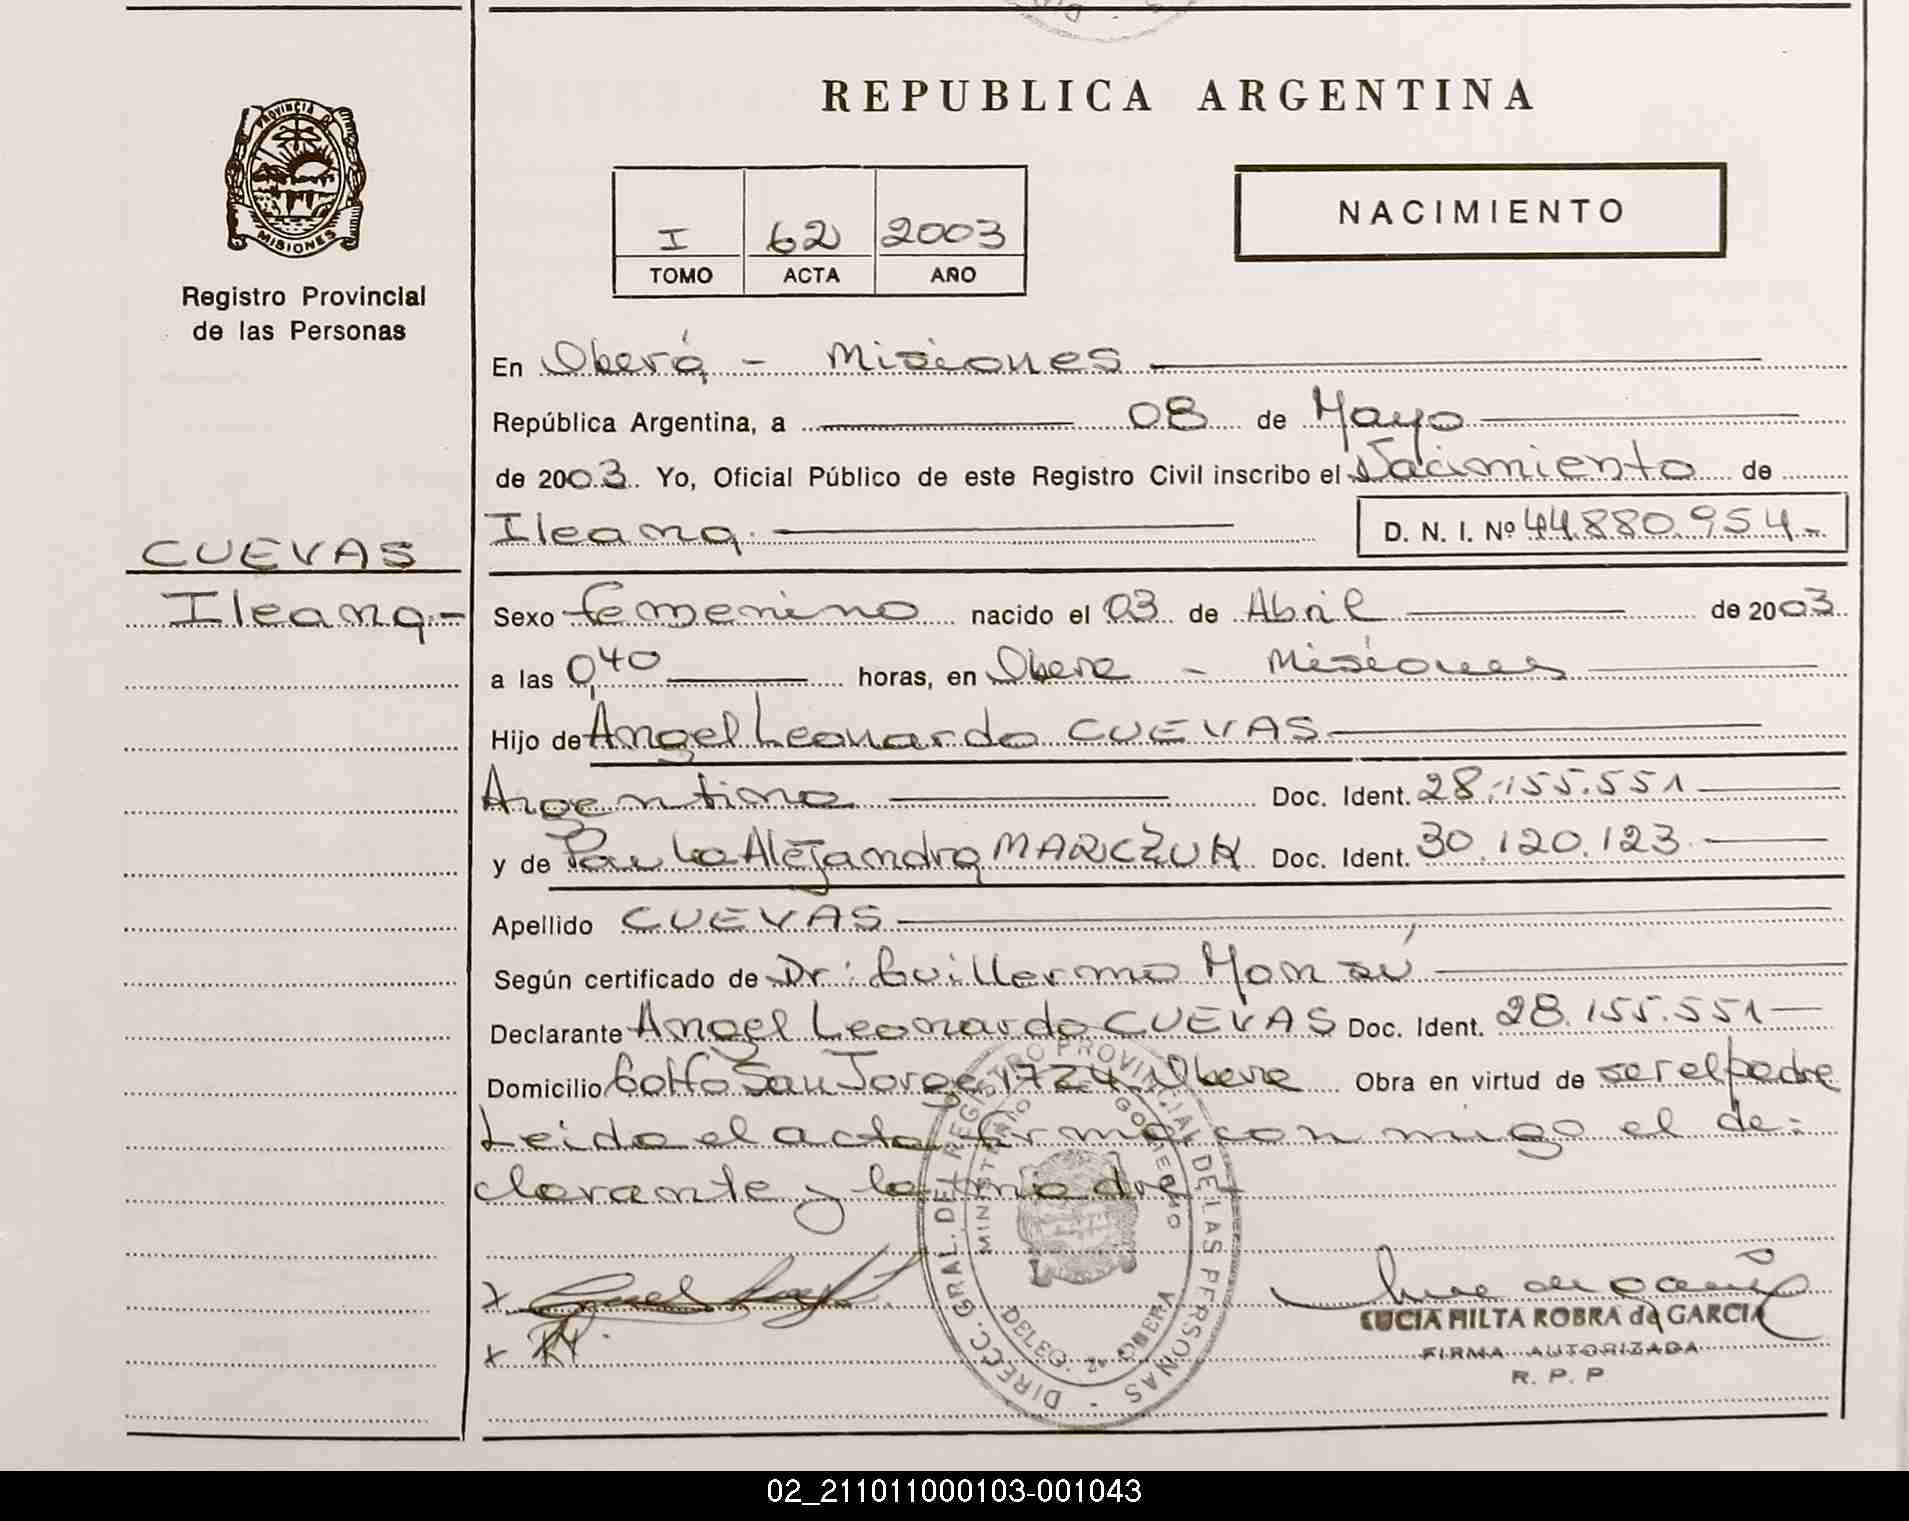 REPUBLICA ARGENTINA
PROVINCIA DE
MISIONES
Registro Provincial
de las Personas
I 62 2003
TOMO ACTA AÑO
NACIMIENTO
En Oberá - Misiones
República Argentina, a 08 de Mayo
de 2003. Yo, Oficial Público de este Registro Civil inscribo el Nacimiento de
Ileana. D. N. I. Nº 44.880.954.-
CUEVAS
Ileana.-
Sexo femenino nacido el 03 de Abril de 2003
a las 0,40 horas, en Obera - Misiones
Hijo de Angel Leonardo CUEVAS
Argentino Doc. Ident. 28.155.551
y de Paula Alejandra MARCZUK Doc. Ident. 30.120.123
Apellido CUEVAS
Según certificado de Dr. Guillermo Monzú
Declarante Angel Leonardo CUEVAS Doc. Ident. 28.155.551
Domicilio Golfo San Jorge 1724 Obera Obra en virtud de ser el padre
Leido el acta firma con migo el de=
clarante y la madre
DIRECC. GRAL. DEL REGISTRO PROVINCIAL DE LAS PERSONAS
MINISTERIO GOBIERNO
DELEG. 2ª OBERA
x
x
LUCIA HILTA ROBRA de GARCIA
FIRMA AUTORIZADA
R. P. P
02_211011000103-001043